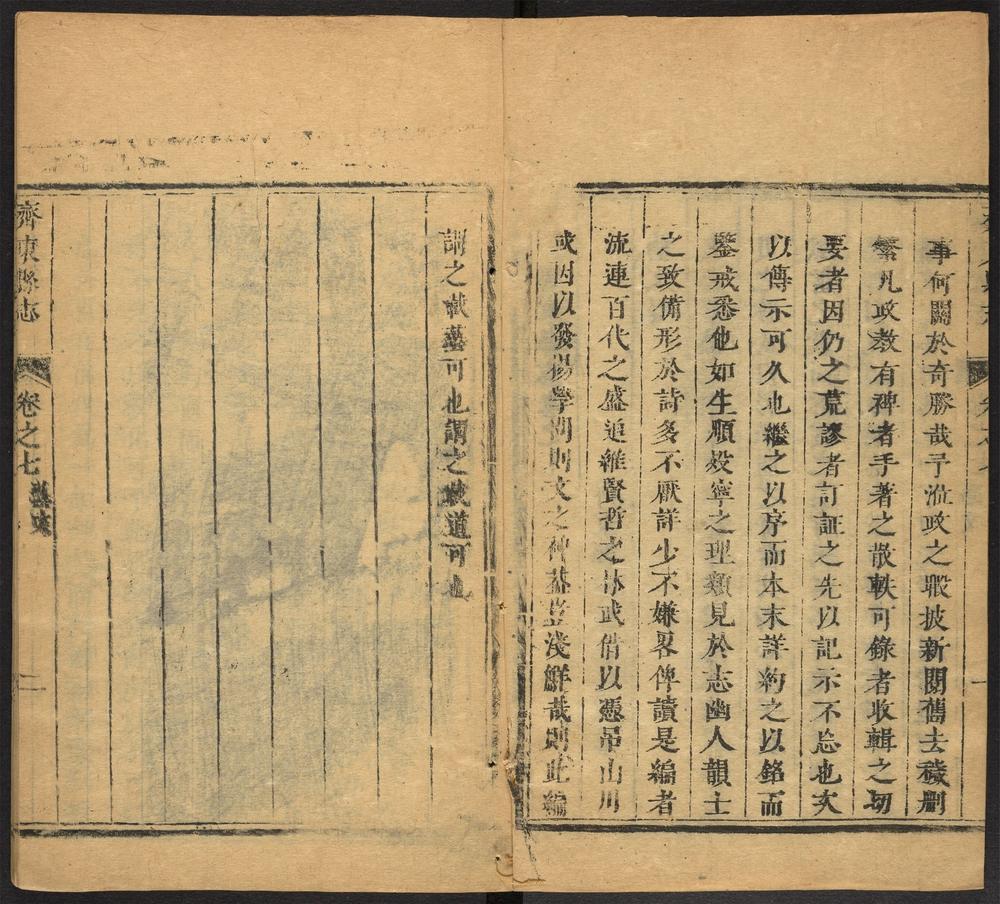 事何關於奇勝哉予涖政之暇披新閱舊去穢刪
繁凡政教有裨者手著之散軼可錄者收輯之切
要者因仍之荒謬者訂証之先以記示不忘也次
以傳示可久也繼之以序而本末詳約之以銘而
鑒戒悉他如生順歿寧之理類見於志幽人韻士
之致備形於詩多不厭詳少不嫌畧俾讀是編者
流連百代之盛追維賢哲之林或借以憑吊山川
或因以發揚學問則文之裨益豈淺鮮哉則此編
謂之載藝可也謂之載道可也
齊東縣志
卷之七
藝文
二